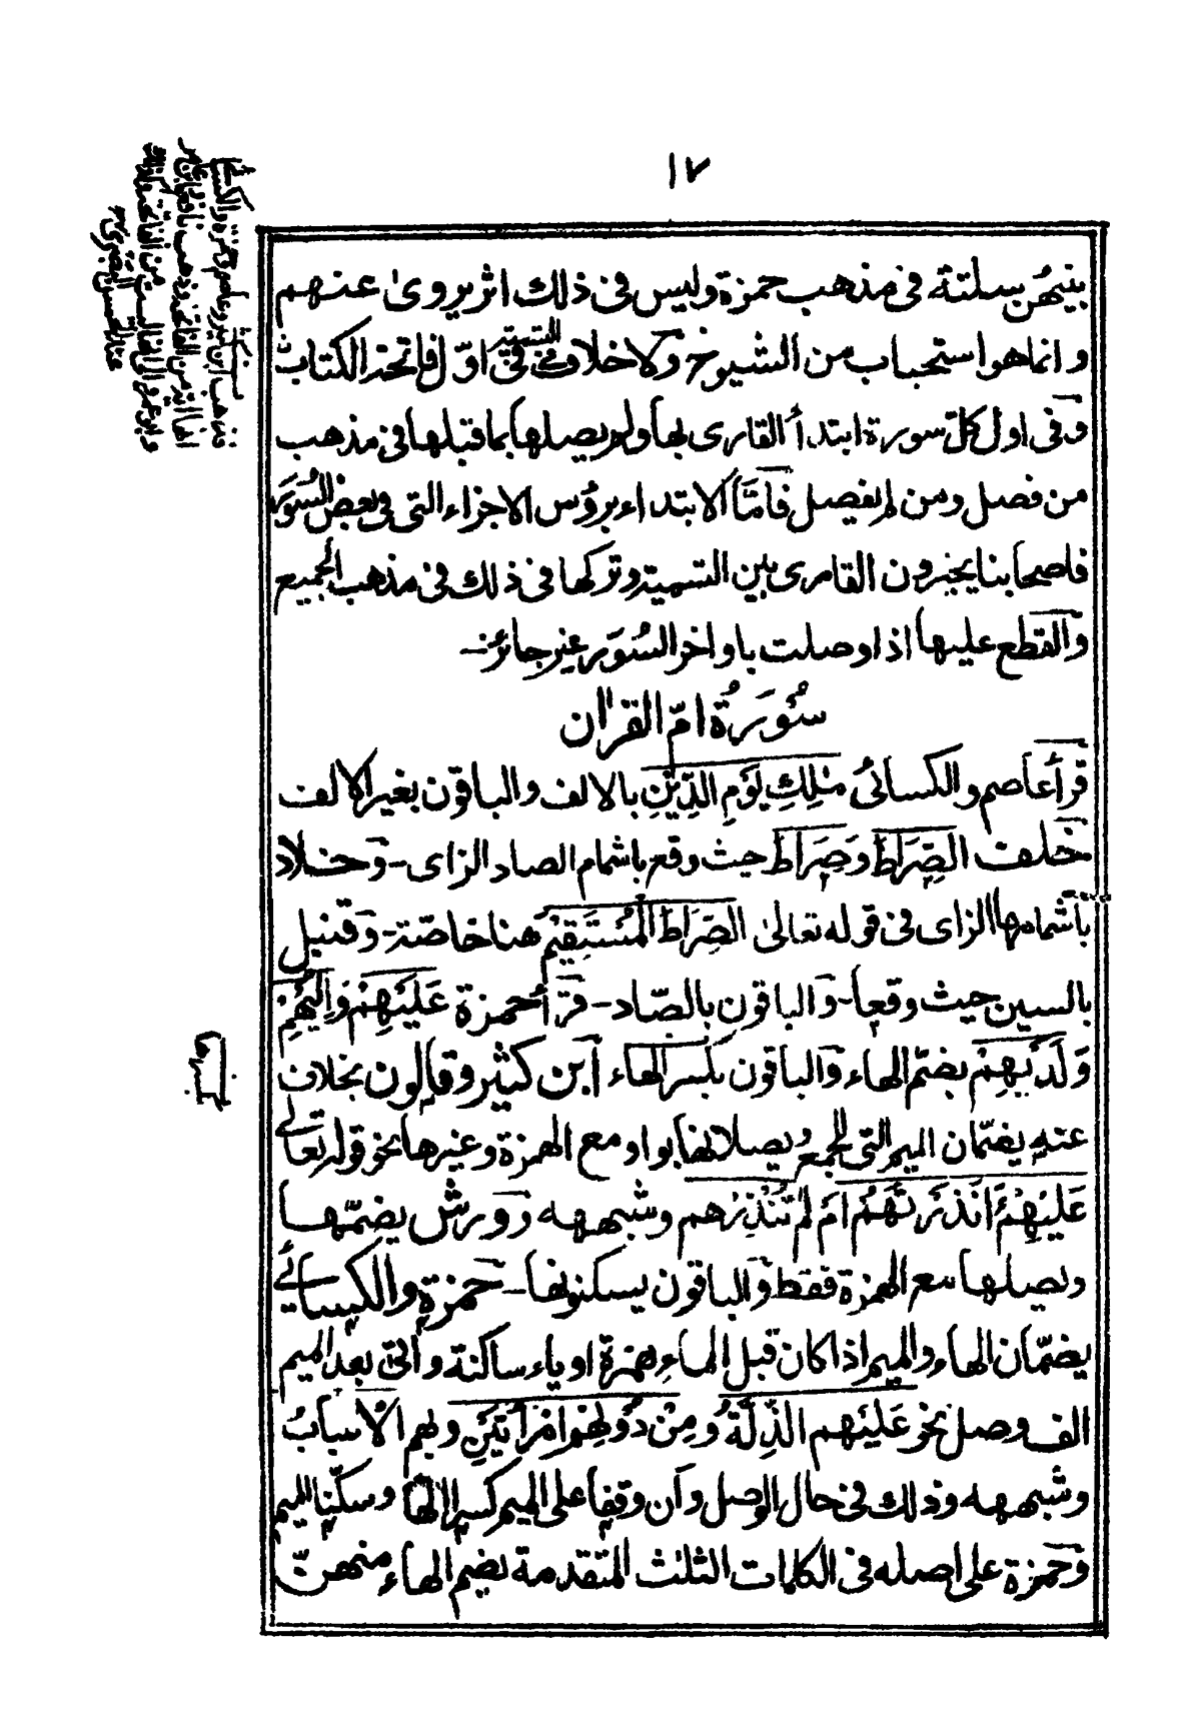 ١٧
بينهن بسكتة فى مذهب حمزة وليس فى ذلك اثر يروى عنهم
وانما هو استحباب من الشيوخ ولا خلاف فى التسمية فى اوّل فاتحة الكتاب
وفى اول كل سورة ابتدأ القارى بها ولم يصلها بما قبلها فى مذهب
من فصل ومن لم يفصل فامّا الابتداء برؤس الاجزاء التى فى بعض السُوَر
فاصحابنا يخيرون القارى بين التسمية وتركها فى ذلك فى مذهب الجميع
والقطع عليها اذا وصلت باواخر السُوَر غير جائز
سُورَةُ امّ القرآن
قرأ عاصم والكسائى مٰلِكِ يَوْمِ الدِّيْنِ بالالف والباقون بغير الالف
خلف الصِّرَاطَ وَصِرَاطَ حيث وقع باشمام الصاد الزاى - وخلاد
باشمامها الزاى فى قوله تعالىٰ الصِّرَاطَ الْمُسْتَقِيْمَ هنا خاصّة - وقنبل
بالسين حيث وقعا - والباقون بالصّاد - قرأ حمزة عَلَيْهِمْ وَاِلَيْهِمْ
وَلَدَيْهِمْ بضمّ الهاء والباقون بكسر الهاء ابن كثير وقالون بخلاف
عنه يضمّان الميم التى للجمع ويصلانها بواو مع الهمزة وغيرها نحو قوله تعالى
عَلَيْهِمْ ءَاَنْذَرْتَهُمْ اَمْ لَمْ تُنْذِرْهم وشبهه وورش يضمّها
ويصلها مع الهمزة فقط والباقون يسكنونها - حمزة والكسائي
يضمّان الهاء والميم اذا كان قبل الهاء كسرة او ياء ساكنة واتى بعد الميم
الف وصل نحو عَلَيْهِم الذِّلَّةُ وَمِنْ دُوْنِهِمُ امْرَأَتَيْنِ وبهم الْاَسْبَابُ
وشبهه وذلك فى حال الوصل وان وقفا على الميم كسرا الهاء وسكّنا الميم
وحمزة على اصله فى الكلمات الثلث المتقدمة بضم الهاء منهنّ